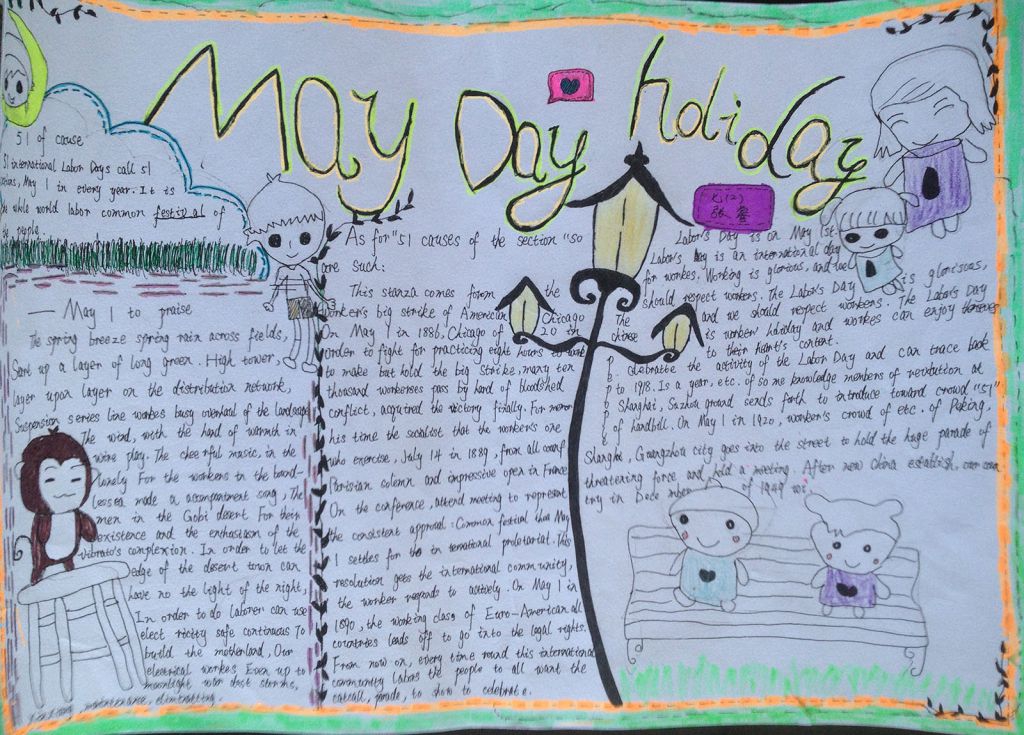 May Day holiday
51 of cause
51 international Labor Days call 51
May 1 in every year. It is
the while world labor common festival of
the people
— May 1 to praise
The spring breeze spring rain across fields,
Sart up a layer of long green. High tower,
layer upon layer on the distribution network,
Suspension series line workes busy overhaul of the landscape
The wind, with the hand of warmth in
wire play. The cheerful music, in the
lonely For the workers in the bound-
lessea made a accompartment song, The
men in the Gobi desert For their
existence and the enthusiasm of the
vibrato's complexion. In order to let the
edge of the desert town can
have no the light of the right,
In order to do laborer can use
elect ricity safe continuous To
build the motherland, Our
electrical workes Even up to
moonlight war dust storms,
maintenance, eliminating.
As for "51 causes of the section "so
are such:
This stanza comes from the
worker's big strike of American Chicago
On May 1 in 1886, Chicago of 20 in
order to fight for practicing eight hours to work
to make but hold the big strike, many ten
thousand workerses pass by hand of bloodshed
conflict, acquired the victory finally. For
his time the socialist that the workers's one
who exercise, July 14 in 1889, from all
Parisian solemn and impressive open in France
On the conference, attend meeting to represent
the consistent approval: Common festival than May
1 settles for the in ternational proletariat. This
resolution gets the international comm unity,
the worker regards to actively. On May 1 in
1890, the working class of Euro-American all
countries leads off to go into the legal rights.
From now on, every time round this international
community labors the people to all want the
catcall, parade, to show to celebrat e.
九(2)
Labor's Day is on May 1st.
Labor's Day is an international day
for workes. Working is glorious, and we
should respect workers. The Labor's Day is gloriouss,
and we should respect workers. The Labor's Day
The chinese is worken' holiday and workes can enjoy
to their heart's content.
p elebratte the activity of the Labor Day and can trace back
p to 1918. Is a year, etc. of so me knowledge members of revolution at
Shanghai, Suzhou ground sends forth to introduce toward crowd "51"
of handbill. On May 1 in 1920, worker's crowd of etc. of Peking,
Shanghai, Guangzhou city goes into the street to hold the huge parade of
threatening force and hold a meeting. After new China establish,
try in Dece mber of 1949